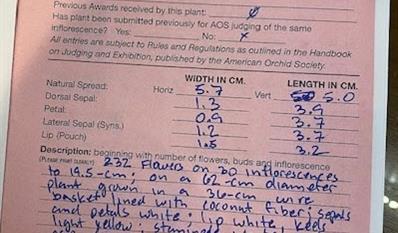 Previous Awards received by this plant: ∅
Has plant been submitted previously for AOS judging of the same
inflorescence? Yes: ___ No: x
All entries are subject to Rules and Regulations as outlined in the Handbook
on Judging and Exhibition, published by the American Orchid Society.
WIDTH IN CM. LENGTH IN CM.
Natural Spread: Horiz 5.7 Vert 5.0
Dorsal Sepal: 1.3 3.9
Petal: 0.9 3.7
Lateral Sepal (Syns.) 1.2 3.7
Lip (Pouch) 1.5 3.2
Description: beginning with number of flowers, buds and inflorescence
(PLEASE PRINT CLEARLY) 232 flowers on 30 inflorescences
to 19.5-cm; on a 62-cm diameter
plant grown in a 36-cm wire
basket lined with coconut fiber; sepals
and petals white; lip white, keels
light yellow;